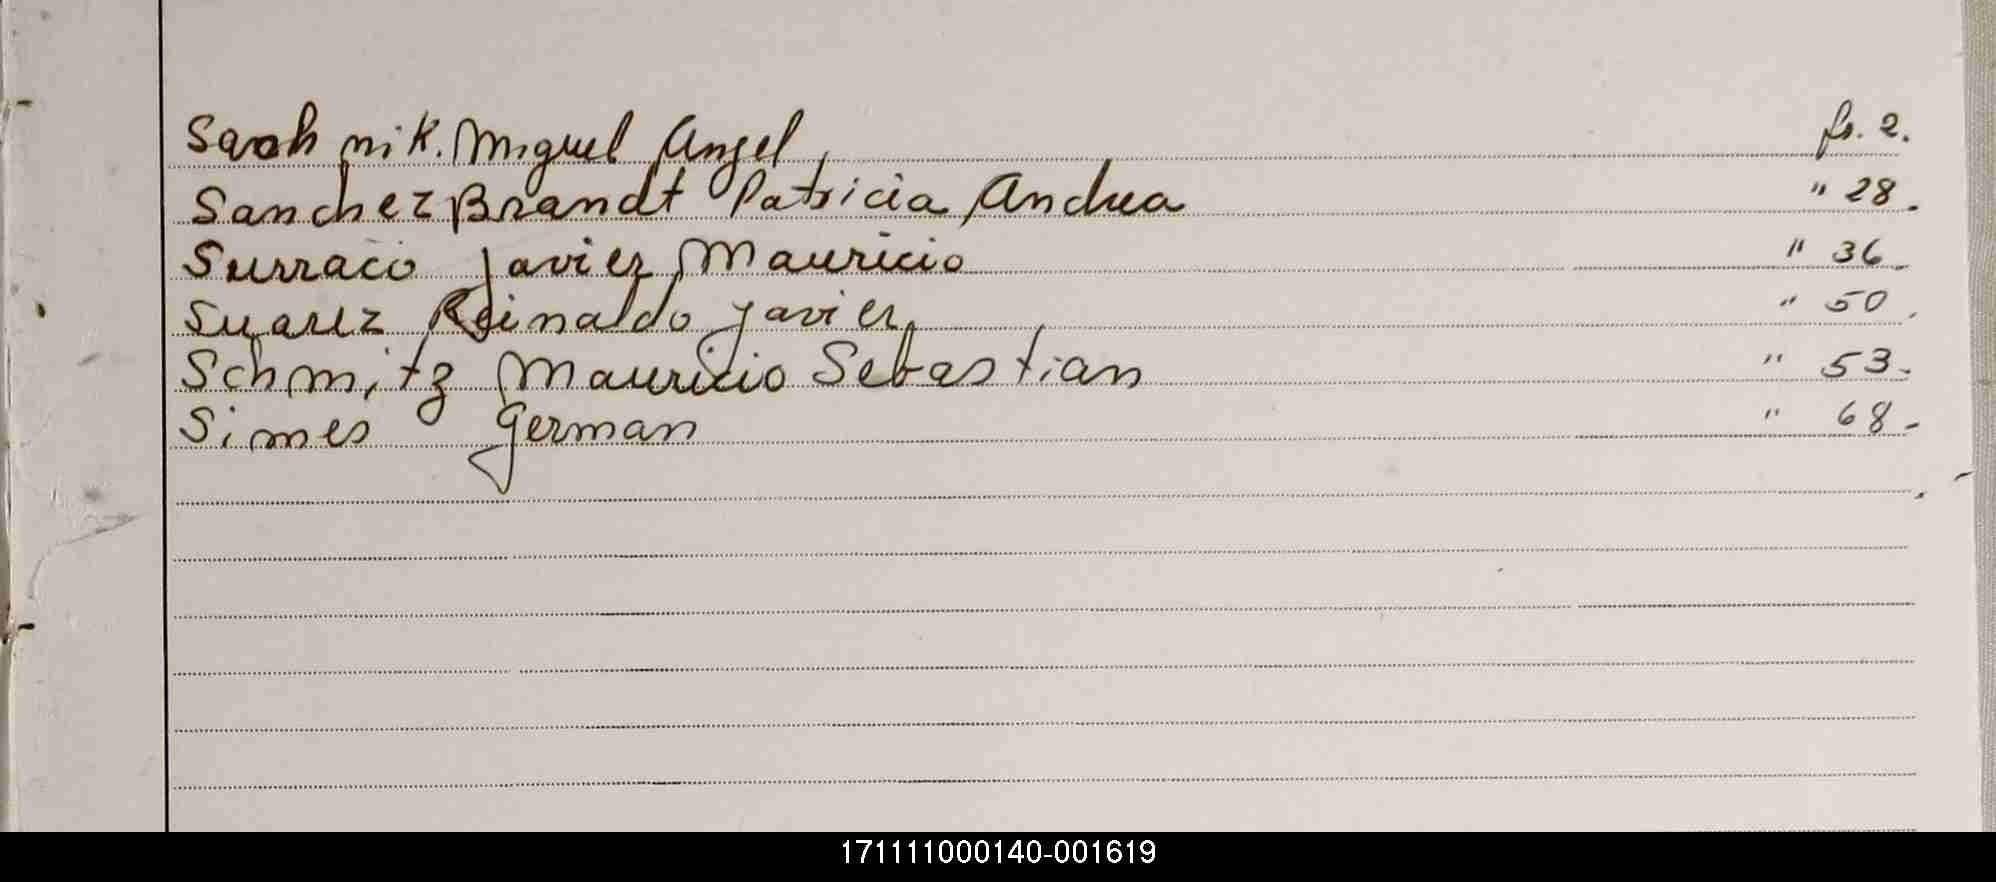 Miguel Angel fs. 2.
Sanchez Brandt Patricia Andrea " 28.
Surraco Javier Mauricio " 36
Suarez Reinaldo Javier " 50
Schmitz Mauricio Sebastian " 53.
Simes German " 68.
171111000140-001619